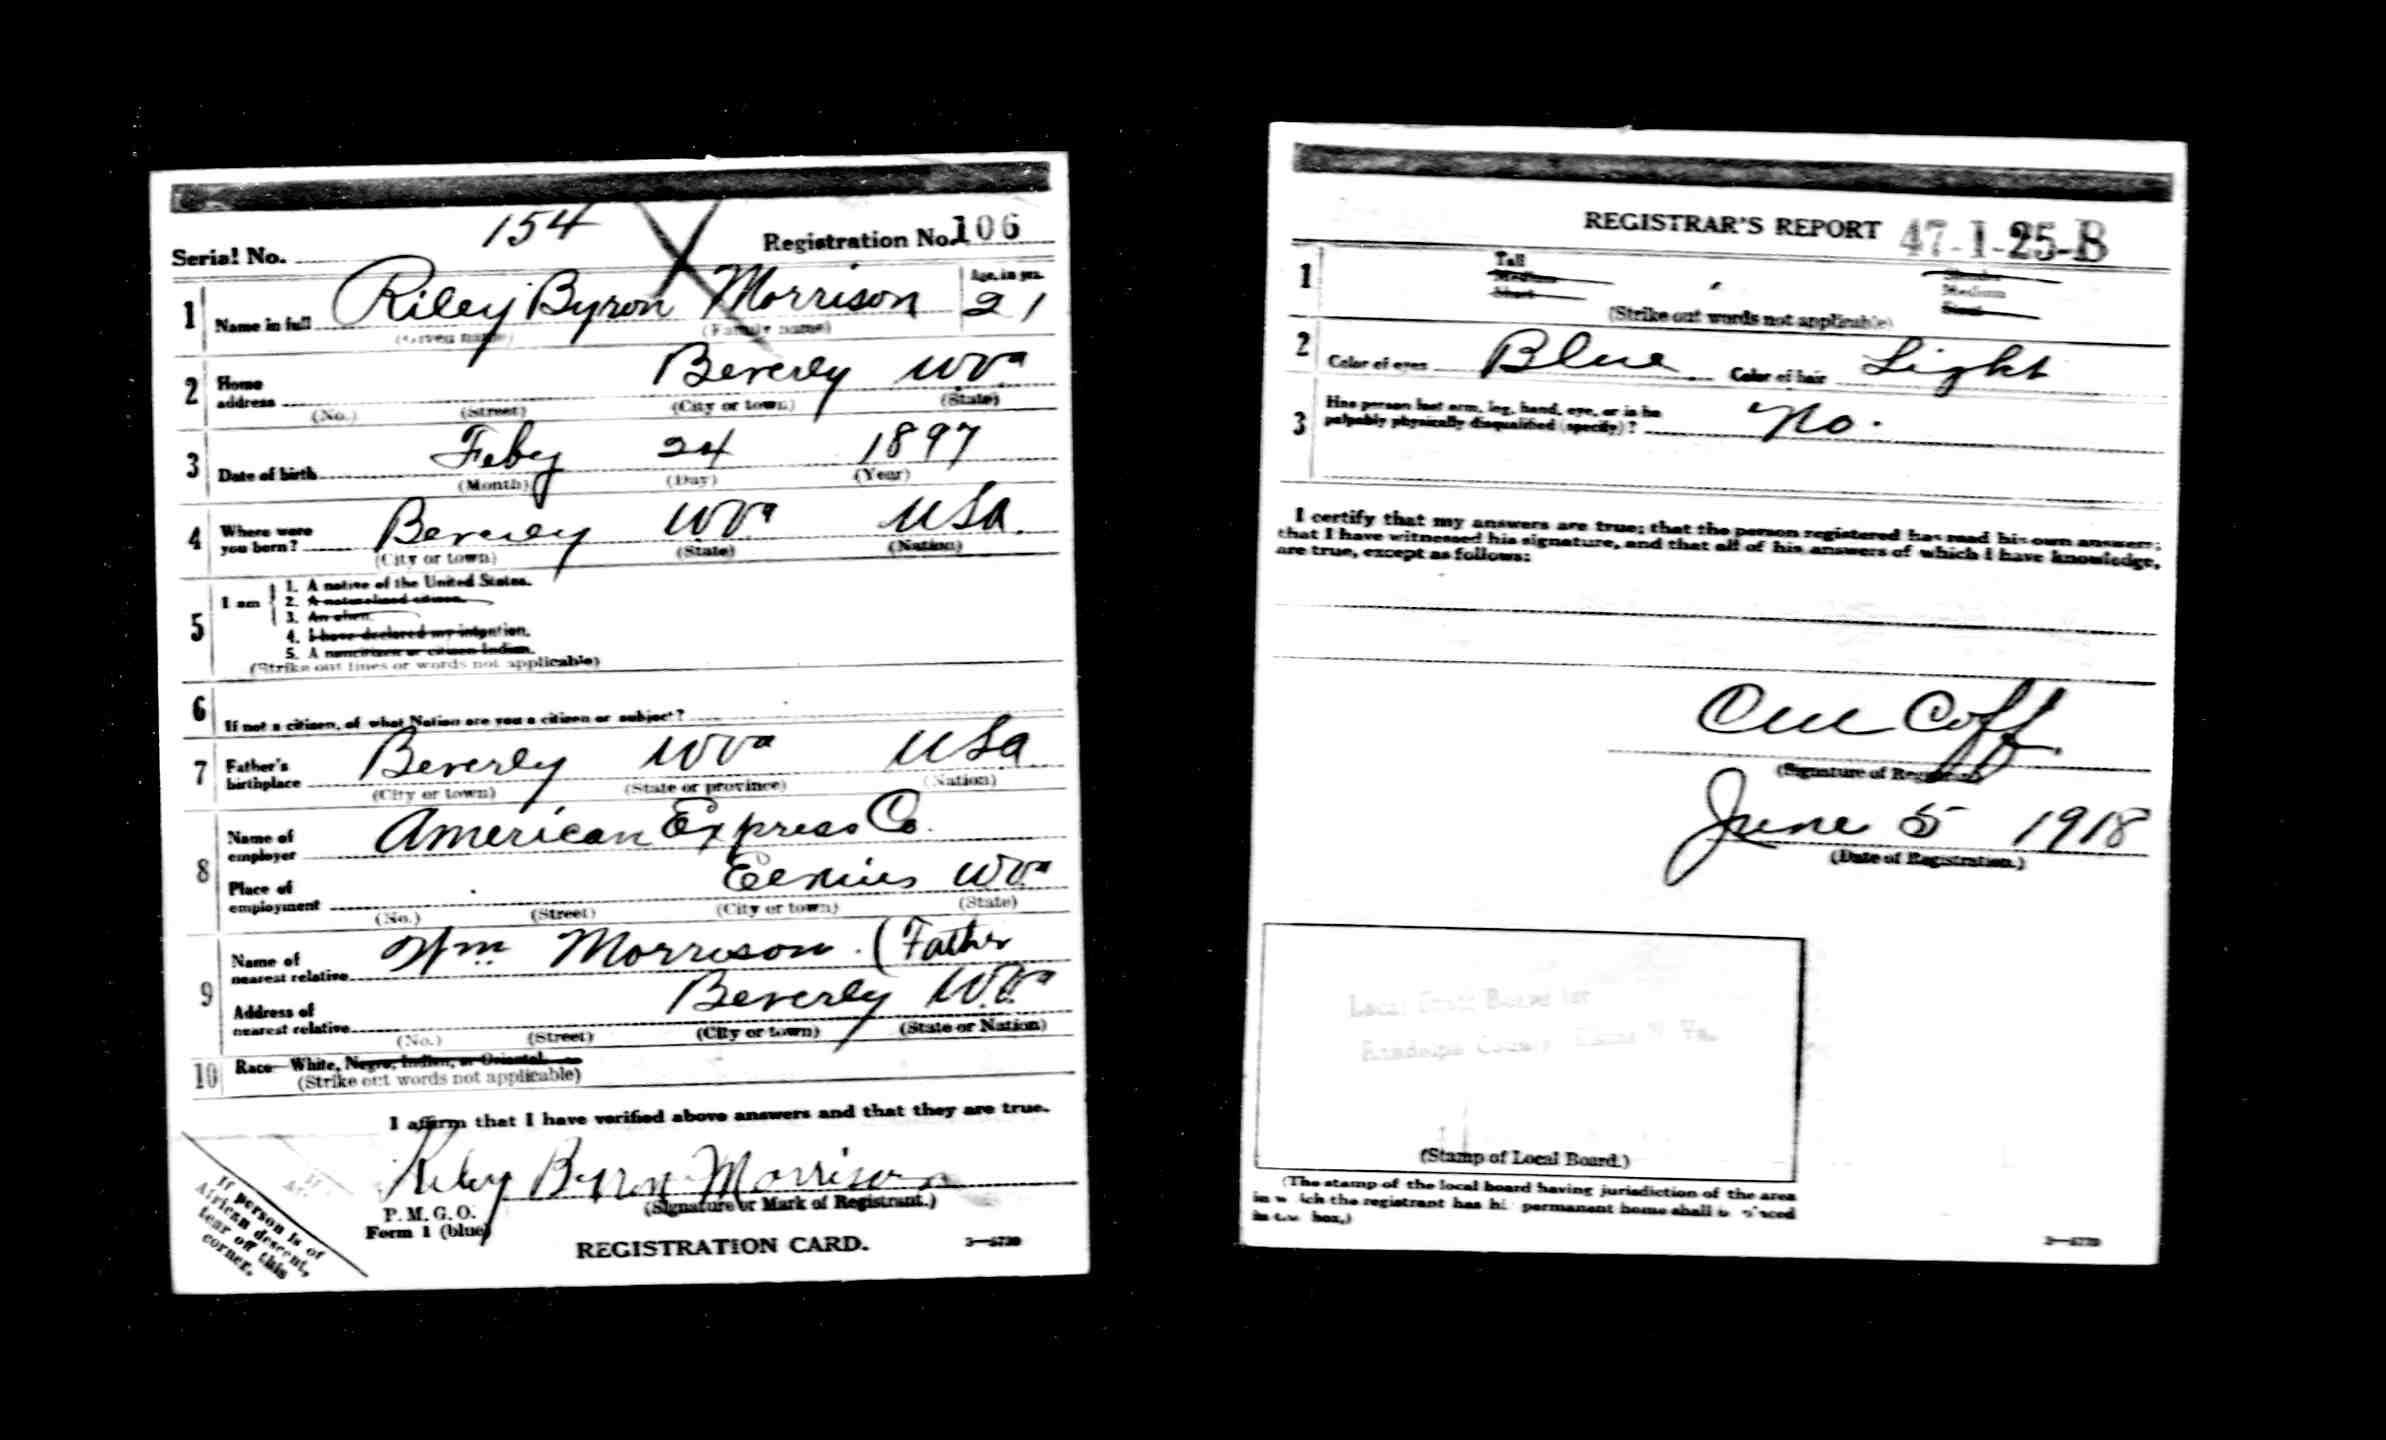 154
Serial No. Registration No. 106
1 Name in full Riley Byron Morrison Age, in yrs. 21
(Given name) (Family name)
2 Home address Beverly WVa
(No.) (Street) (City or town) (State)
3 Date of birth Feby 24 1897
(Month) (Day) (Year)
4 Where were you born? Beverly WVa USA.
(City or town) (State) (Nation)
5 I am
1. A native of the United States.
2. A naturalized citizen.
3. An alien.
4. I have declared my intention.
5. A noncitizen or citizen Indian.
(Strike out lines or words not applicable)
6 If not a citizen, of what Nation are you a citizen or subject?
7 Father's birthplace Beverly WVa USA
(City or town) (State or province) (Nation)
8 Name of employer American Express Co.
Place of employment WVa
(No.) (Street) (City or town) (State)
9 Name of nearest relative Wm Morrison. (Father
Address of nearest relative Beverly W.Va
(No.) (Street) (City or town) (State or Nation)
10 Race—White, Negro, Indian, or Oriental
(Strike out words not applicable)
I affirm that I have verified above answers and that they are true.
Riley Byron Morrison
(Signature or Mark of Registrant.)
P. M. G. O.
Form 1 (blue)
REGISTRATION CARD.
If person is of
African descent,
tear off this
corner.
REGISTRAR'S REPORT 47-1-25-B
1 Tall Slender
Medium Medium
Short Stout
(Strike out words not applicable)
2 Color of eyes Blue Color of hair Light
3 Has person lost arm, leg, hand, eye, or is he
palpably physically disqualified (specify)? No.
I certify that my answers are true; that the person registered has read his own answers;
that I have witnessed his signature, and that all of his answers of which I have knowledge,
are true, except as follows:
(Signature of Registrar)
June 5 1918
(Date of Registration.)
Local Draft Board for
Randolph County W. Va.
(Stamp of Local Board.)
(The stamp of the local board having jurisdiction of the area
in which the registrant has his permanent home shall be placed
in this box.)